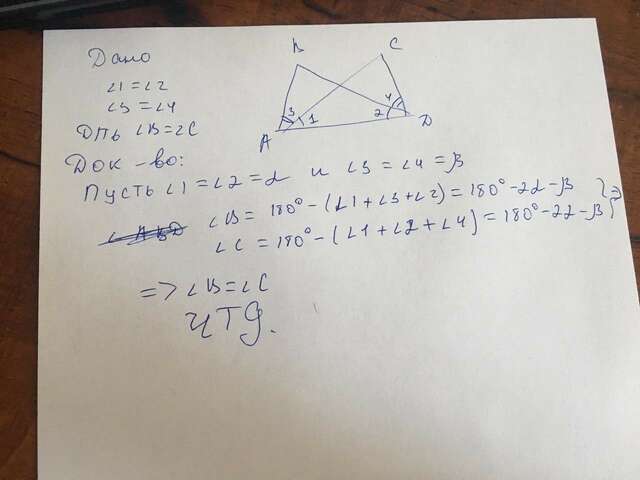 Дано
∠1=∠2
∠3=∠4
Дпь ∠B=∠C
B
C
3
1
2
4
A
D
Док-во:
Пусть ∠1=∠2=α и ∠3=∠4=β
∠B = 180° - (∠1+∠3+∠2) = 180° - 2α - β
∠C = 180° - (∠1+∠2+∠4) = 180° - 2α - β
=> ∠B=∠C
ЧТД.